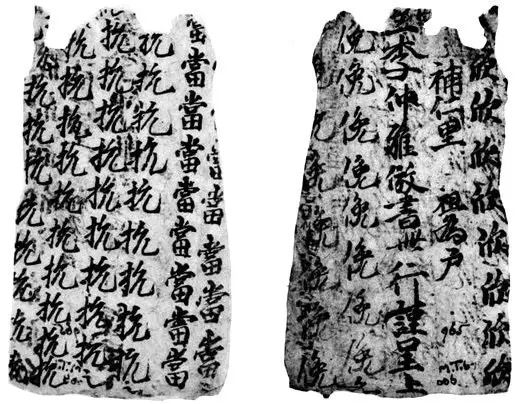 當當當當當當
當當當當當當當當當
抗抗抗抗抗抗抗抗
抗抗抗抗抗抗抗抗抗
抗抗抗抗抗抗抗抗抗
抗抗抗抗抗抗抗抗
欣欣欣欣欣欣欣欣
補仁里 祖為户
李仲雅倣書卌行謹呈上
俛俛俛俛俛俛俛俛
俛俛俛俛俛俛
965
M.T.b.
006